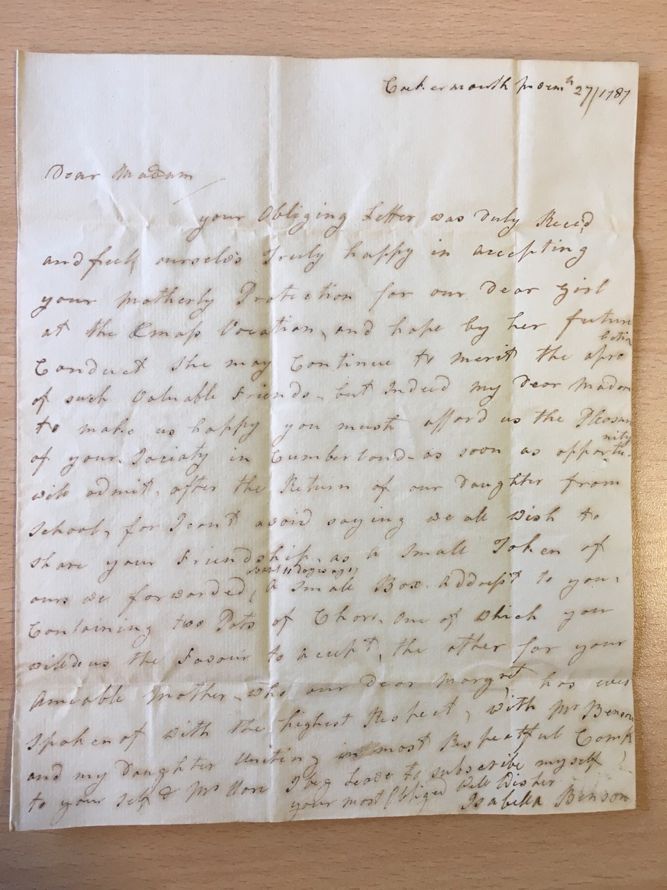 Cockermouth Novmr 27/1787
Dear Madam
your Obliging Letter was duly Reced
and feell ourselves Truly happy in accepting
your Motherly Protection for our Dear Girl
at the Xmass Vocation, and hope by her future
Conduct she may Continue to merit the apro
bation
of such Valuable Friends - but Indeed my Dear Madam
to make us happy you must afford us the Pleasure
of your Sociaty in Cumberland - as soon as opportu-
nity
will admit, after the Return of our Daughter from
School, for I cant avoid saying we all Wish to
Share your Friendship - as a Small Token of
about 11 Days ago
ours we forwarded, a Small Box Addresst to you -
Containing two Pots of Charr, One of which you
will do us the Favour to accept, the other for your
Amiable Mother - who our Dear Margrt has ever
Spoken of with the highest Respect, with Mr Benson
and my Daughter Uniting in most Respectful Compts
to your Self & Mr I beg Leave to subscribe myself
your most Obliged Well Wisher
Isabella Benson